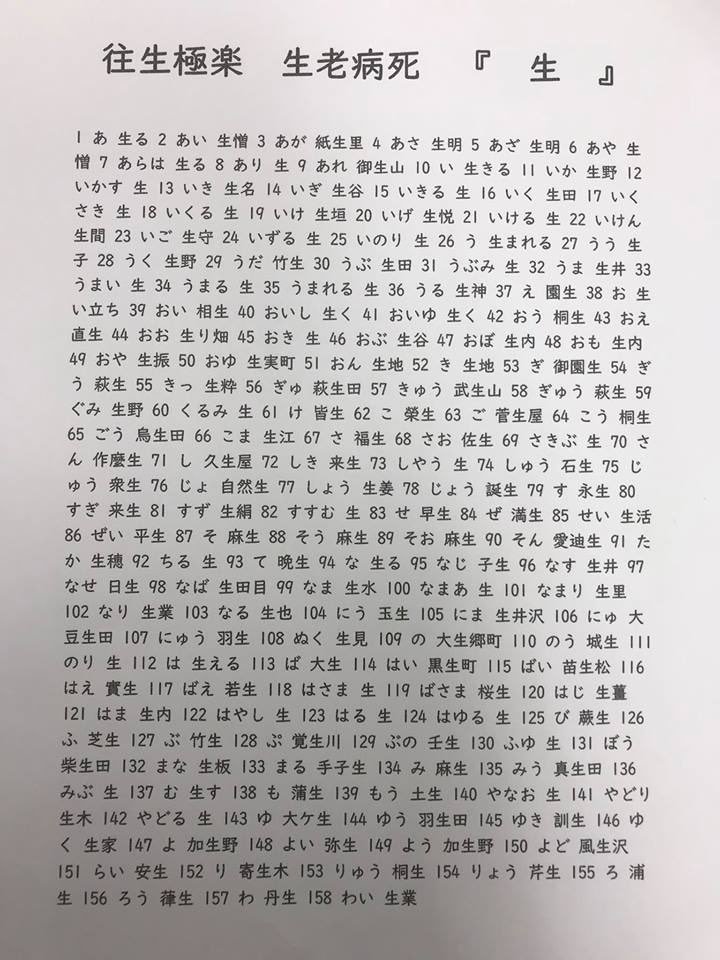 往生極楽　生老病死　『　生　』
1 あ 生る 2 あい 生憎 3 あが 紙生里 4 あさ 生明 5 あざ 生明 6 あや 生
憎 7 あらは 生る 8 あり 生 9 あれ 御生山 10 い 生きる 11 いか 生野 12
いかす 生 13 いき 生名 14 いぎ 生谷 15 いきる 生 16 いく 生田 17 いく
さき 生 18 いくる 生 19 いけ 生垣 20 いげ 生悦 21 いける 生 22 いけん
生間 23 いご 生守 24 いずる 生 25 いのり 生 26 う 生まれる 27 うう 生
子 28 うく 生野 29 うだ 竹生 30 うぶ 生田 31 うぶみ 生 32 うま 生井 33
うまい 生 34 うまる 生 35 うまれる 生 36 うる 生神 37 え 園生 38 お 生
い立ち 39 おい 相生 40 おいし 生く 41 おいゆ 生く 42 おう 桐生 43 おえ
直生 44 おお 生り畑 45 おき 生 46 おぶ 生谷 47 おぼ 生内 48 おも 生内
49 おや 生振 50 おゆ 生実町 51 おん 生地 52 き 生地 53 ぎ 御園生 54 ぎ
う 萩生 55 きっ 生粋 56 ぎゅ 萩生田 57 きゅう 武生山 58 ぎゅう 萩生 59
ぐみ 生野 60 くるみ 生 61 け 皆生 62 こ 榮生 63 ご 菅生屋 64 こう 桐生
65 ごう 烏生田 66 こま 生江 67 さ 福生 68 さお 佐生 69 さきぶ 生 70 さ
ん 作麼生 71 し 久生屋 72 しき 来生 73 しやう 生 74 しゅう 石生 75 じ
ゅう 衆生 76 じょ 自然生 77 しょう 生姜 78 じょう 誕生 79 す 永生 80
すぎ 来生 81 すず 生絹 82 すすむ 生 83 せ 早生 84 ぜ 満生 85 せい 生活
86 ぜい 平生 87 そ 麻生 88 そう 麻生 89 そお 麻生 90 そん 愛迪生 91 た
か 生穂 92 ちる 生 93 て 晩生 94 な 生る 95 なじ 子生 96 なす 生井 97
なせ 日生 98 なば 生田目 99 なま 生水 100 なまあ 生 101 なまり 生里
102 なり 生業 103 なる 生也 104 にう 玉生 105 にま 生井沢 106 にゅ 大
豆生田 107 にゅう 羽生 108 ぬく 生見 109 の 大生郷町 110 のう 城生 111
のり 生 112 は 生える 113 ば 大生 114 はい 黒生町 115 ばい 苗生松 116
はえ 實生 117 ばえ 若生 118 はさま 生 119 ばさま 桜生 120 はじ 生薑
121 はま 生内 122 はやし 生 123 はる 生 124 はゆる 生 125 び 蕨生 126
ふ 芝生 127 ぶ 竹生 128 ぷ 覚生川 129 ぶの 壬生 130 ふゆ 生 131 ぼう
柴生田 132 まな 生板 133 まる 手子生 134 み 麻生 135 みう 真生田 136
みぶ 生 137 む 生す 138 も 蒲生 139 もう 土生 140 やなお 生 141 やどり
生木 142 やどる 生 143 ゆ 大ケ生 144 ゆう 羽生田 145 ゆき 訓生 146 ゆ
く 生家 147 よ 加生野 148 よい 弥生 149 よう 加生野 150 よど 風生沢
151 らい 安生 152 り 寄生木 153 りゅう 桐生 154 りょう 芹生 155 ろ 浦
生 156 ろう 葎生 157 わ 丹生 158 わい 生業